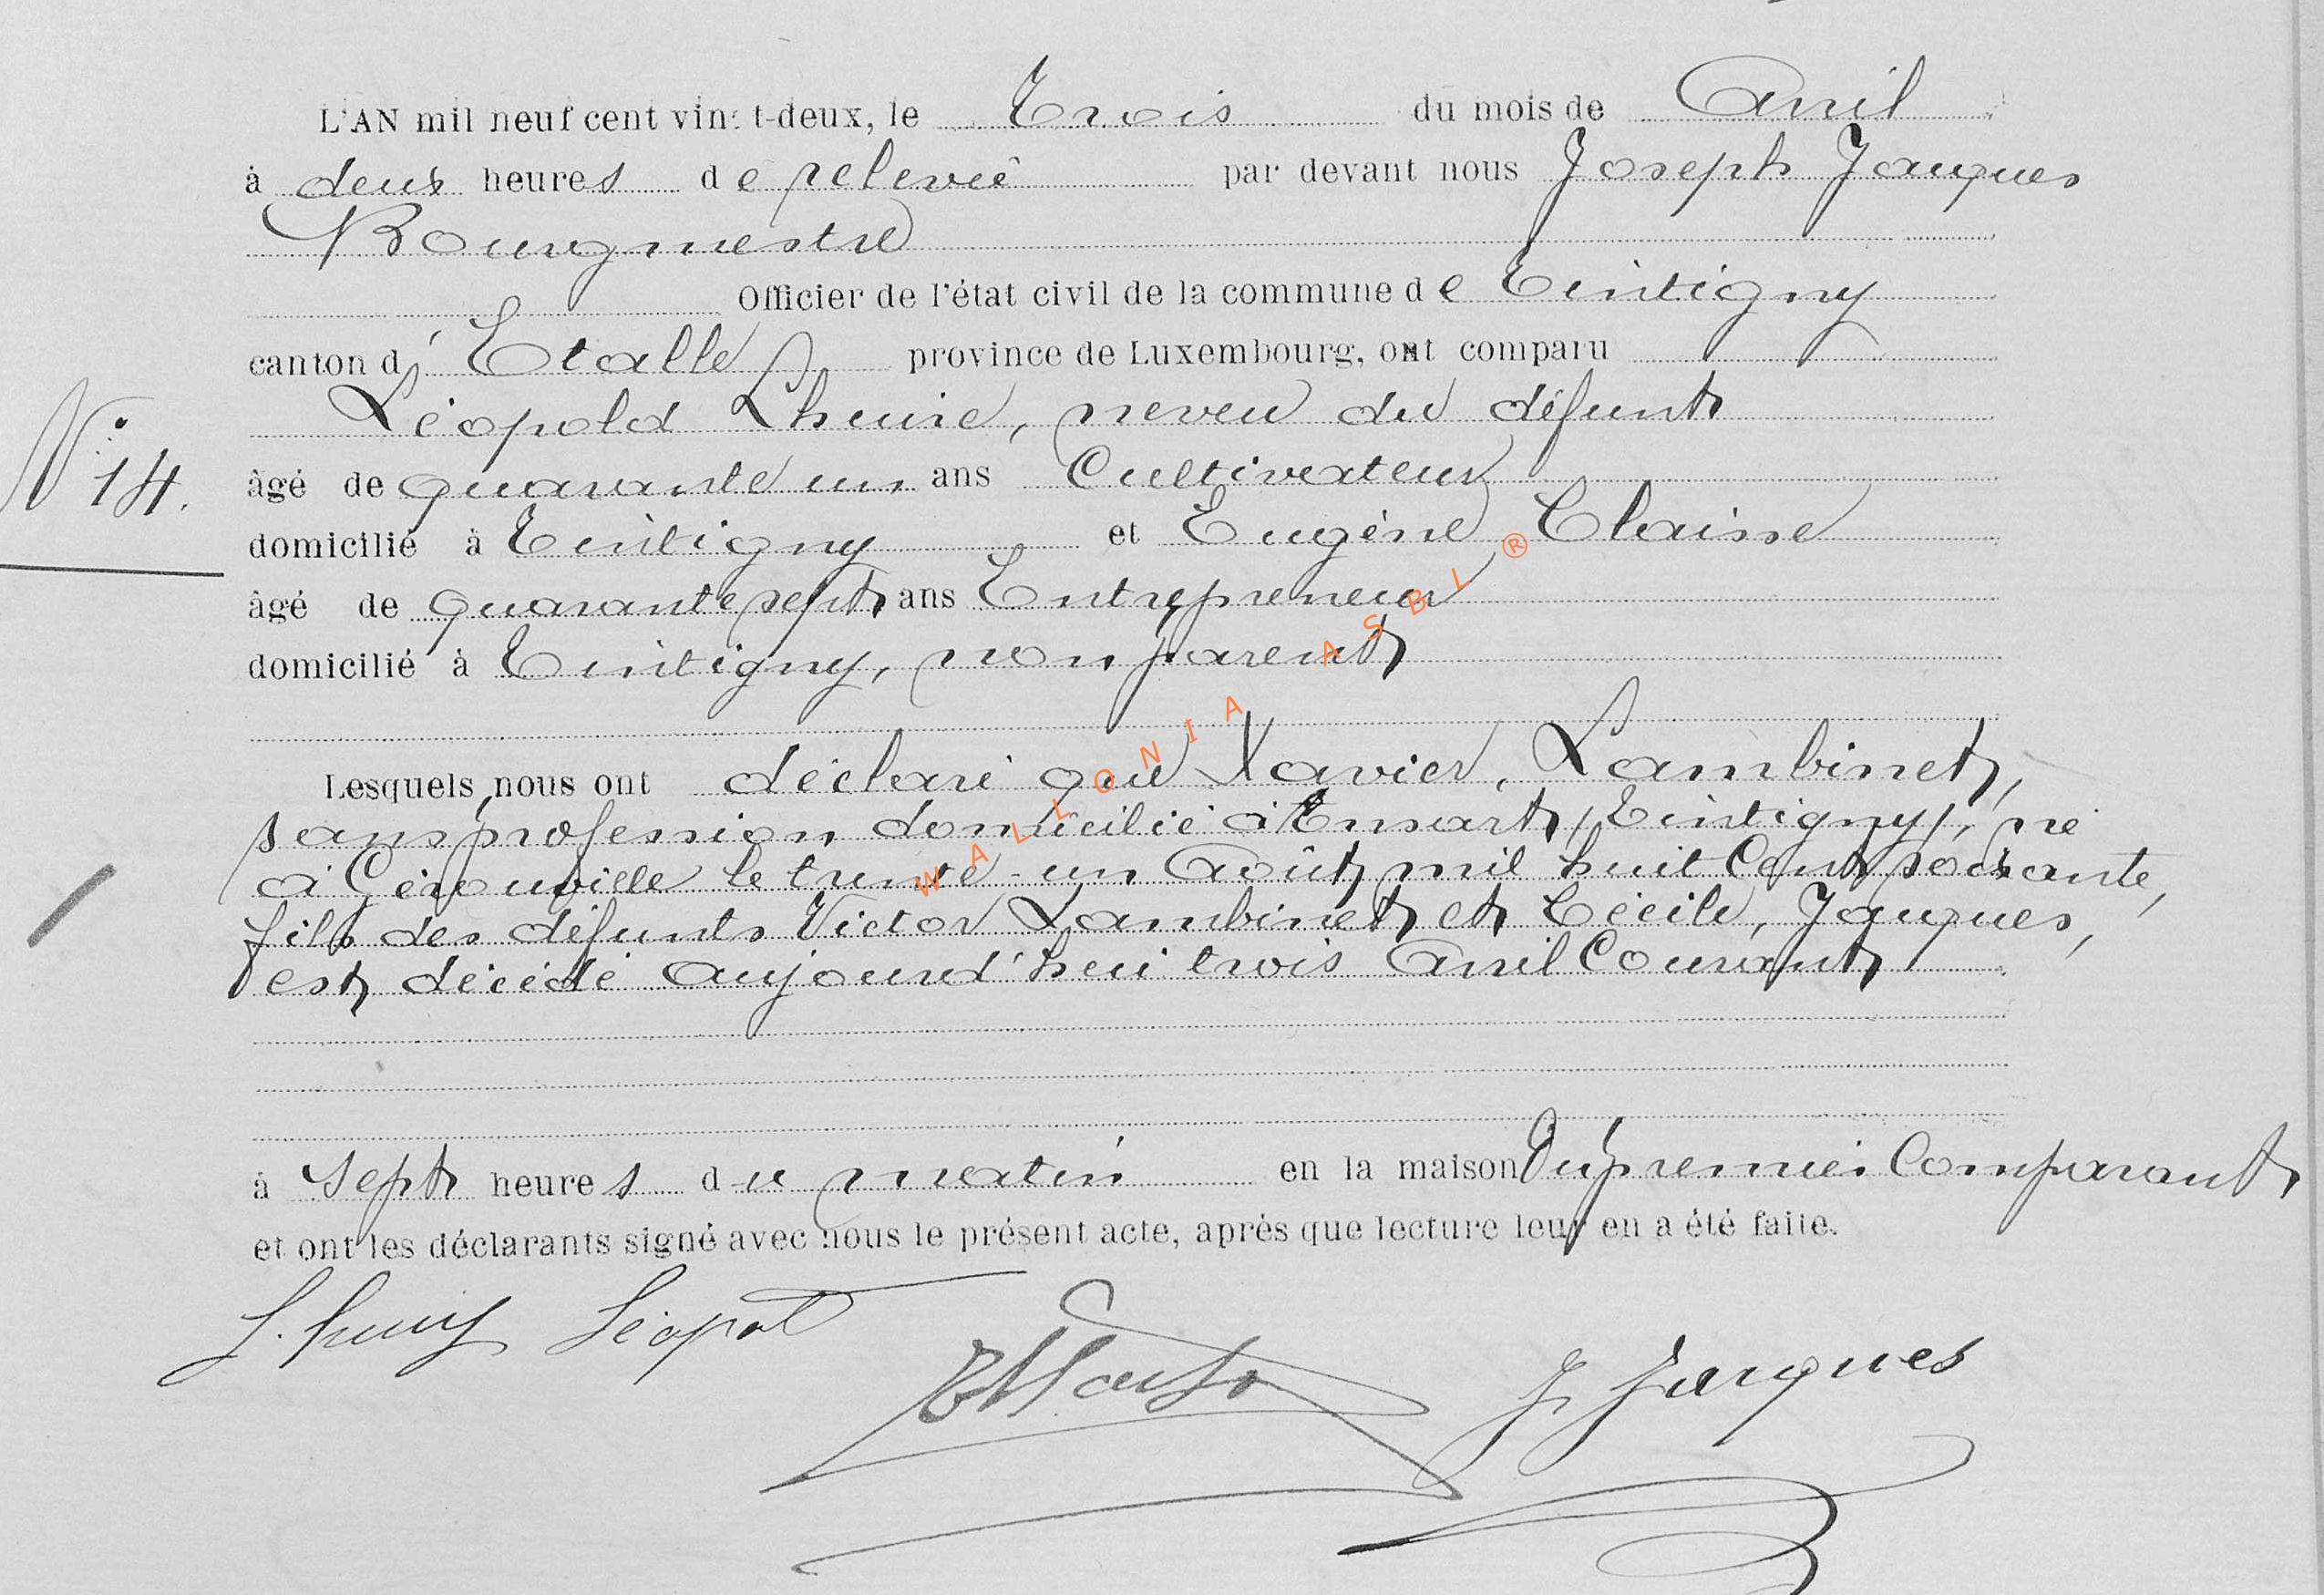 L'AN mil neuf cent vingt-deux, le Trois du mois de Avril
à deux heures de relevée par devant nous Joseph Jacques
Bourgmestre
Officier de l'état civil de la commune de Tintigny
canton d'Etalle province de Luxembourg, ont comparu
Léopold Lhuire, neveu du défunt
N° 14.
âgé de quarante un ans Cultivateur
domicilié à Tintigny et Eugène Claisse
âgé de quarante sept ans Entrepreneur
domicilié à Tintigny, non parent
Lesquels nous ont déclaré que Xavier, Lambinet,
sans profession domicilié à Ansart, (Tintigny), né
à Gérouville le trente-un Août mil huit Cent soixante,
fils des défunts Victor Lambinet et Cécile, Jacques,
est décédé aujourd'hui trois Avril Courant
à sept heures du matin en la maison du premier Comparant
et ont les déclarants signé avec nous le présent acte, après que lecture leur en a été faite.
Léopol
J Jacques
WALLONIA ASBL ®